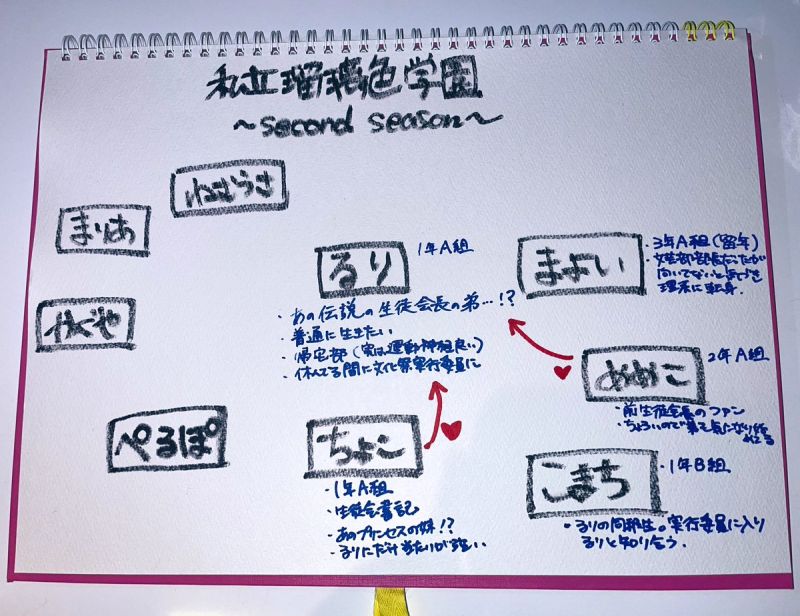 私立瑠璃色学園
~second season~
ねむうさ
まりあ
かぐや
ぺるぽ
るり
1年A組
・あの伝説の生徒会長の弟…!?
・普通に生きたい
・帰宅部(実は運動神経良い)
・休んでる間に文化祭実行委員に
まよい
・3年A組(留年)
文芸部部長だったが
向いてないと
理系に転身.
あめこ
2年A組
・前生徒会長のファン
・ちょろいので弟も気になり
ちょこ
・1年A組
・生徒会書記
・あのプリンセスの妹!?
・るりにだけ当たりが強い.
こまち
・1年B組
・るりの同級生。実行委員に入り
るりと知り合う.